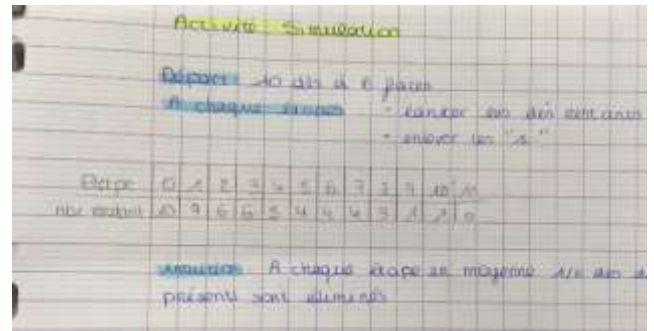 Activité Simulation
Départ: 10 dés à 6 faces
A chaque étape: - lancer les dés restants
- enlever les "1"
Etape 0 1 2 3 4 5 6 7 8 9 10 11
nbr restant 10 9 6 6 5 4 4 4 3 1 1 0
Intuition A chaque étape en moyenne 1/6 des d
présents sont éliminés